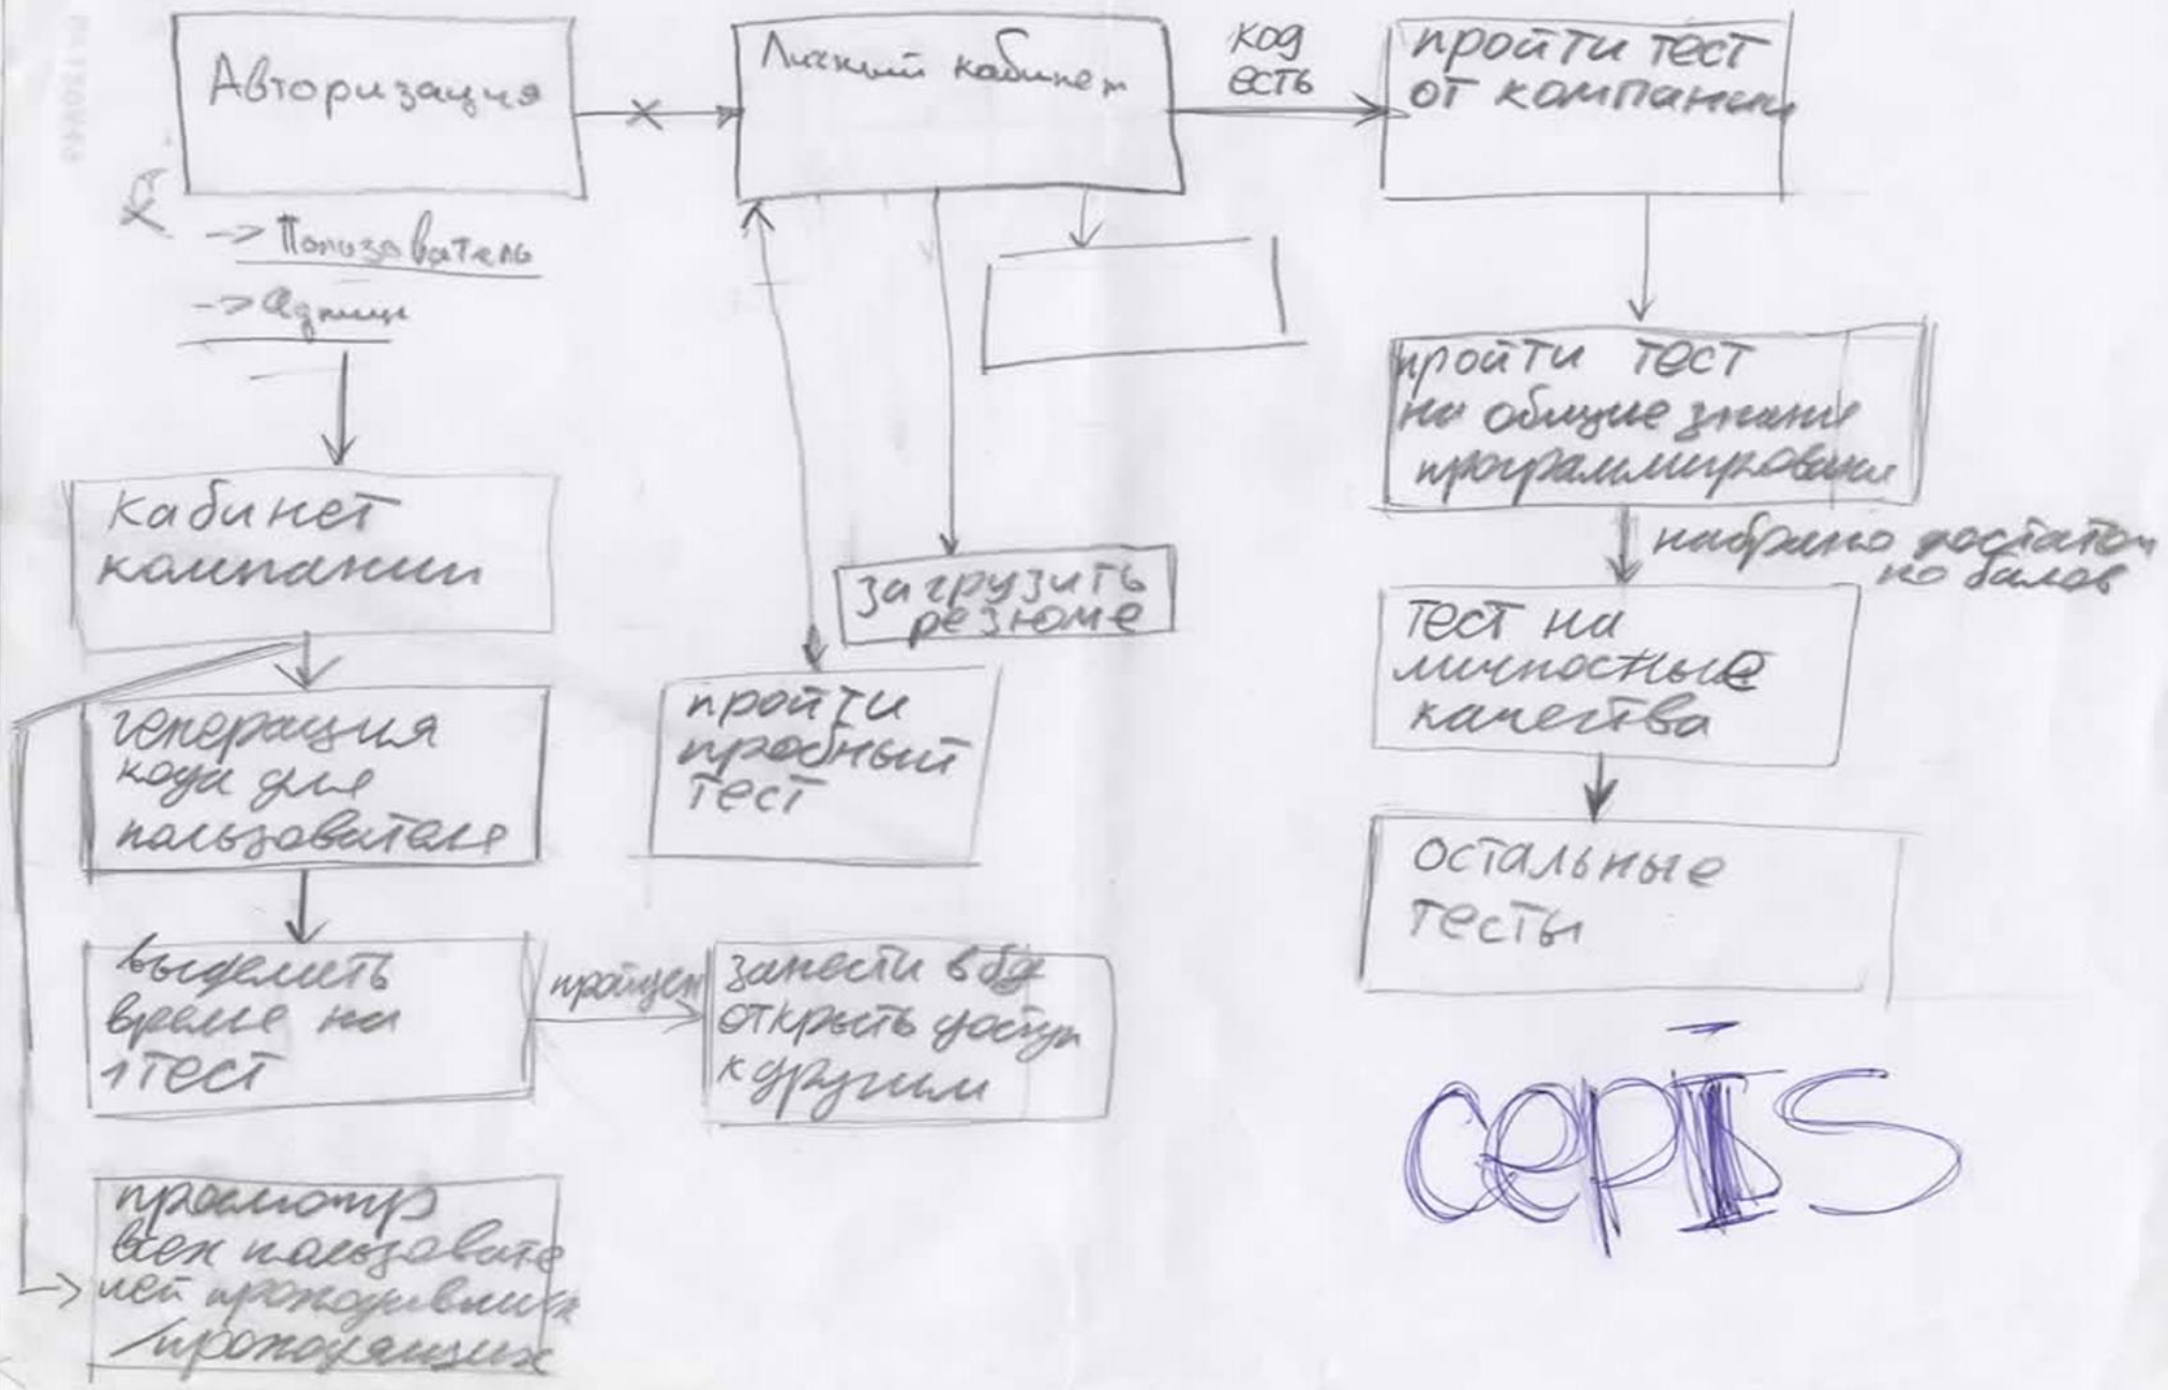 Авторизация
→ Пользователь
→ Админ
Личный кабинет
код
есть
пройти тест
от компании
пройти тест
на общие знани
программировани
набрано достаточ
но балов
тест на
личностные
качества
остальные
тесты
загрузить
резюме
пройти
пробный
тест
кабинет
компании
генерация
кода для
пользователя
выделить
время на
1 тест
пройден
занести в бд
открыть доступ
к другим
просмотр
всех пользовате
лей проходивших
/проходящих